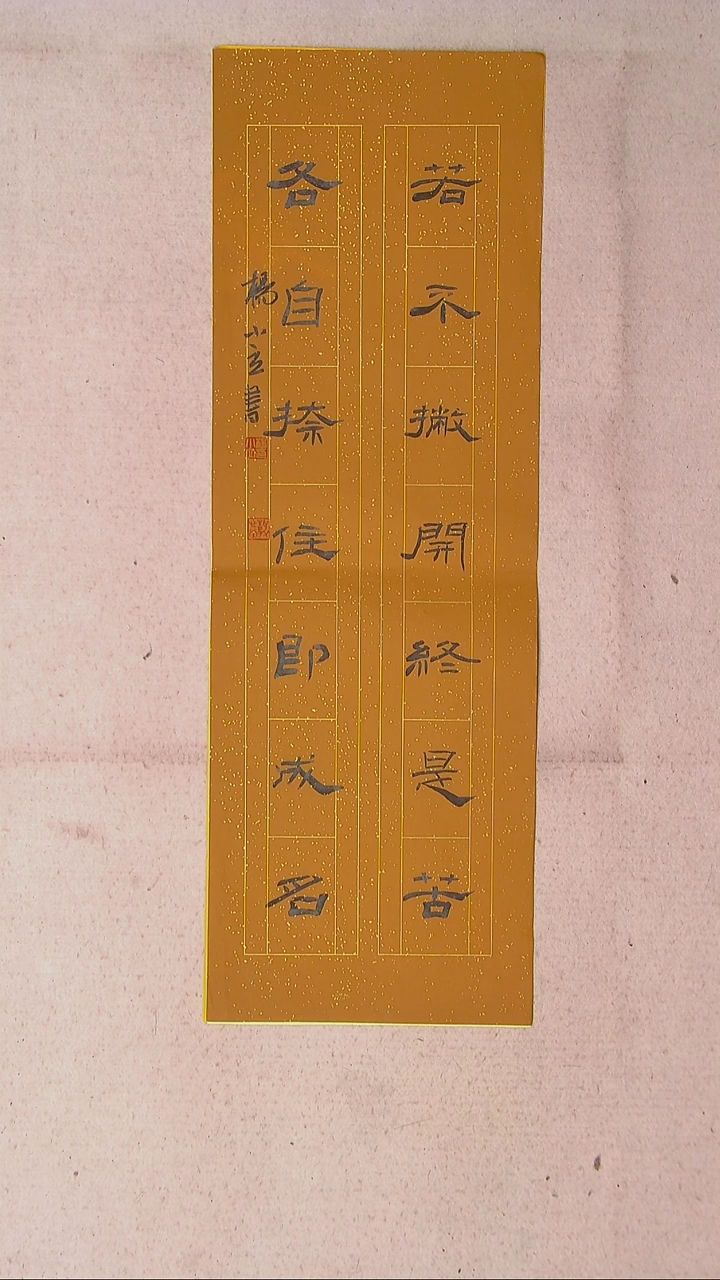 若不撇開終是苦
各自捺住即成名
楊小立書